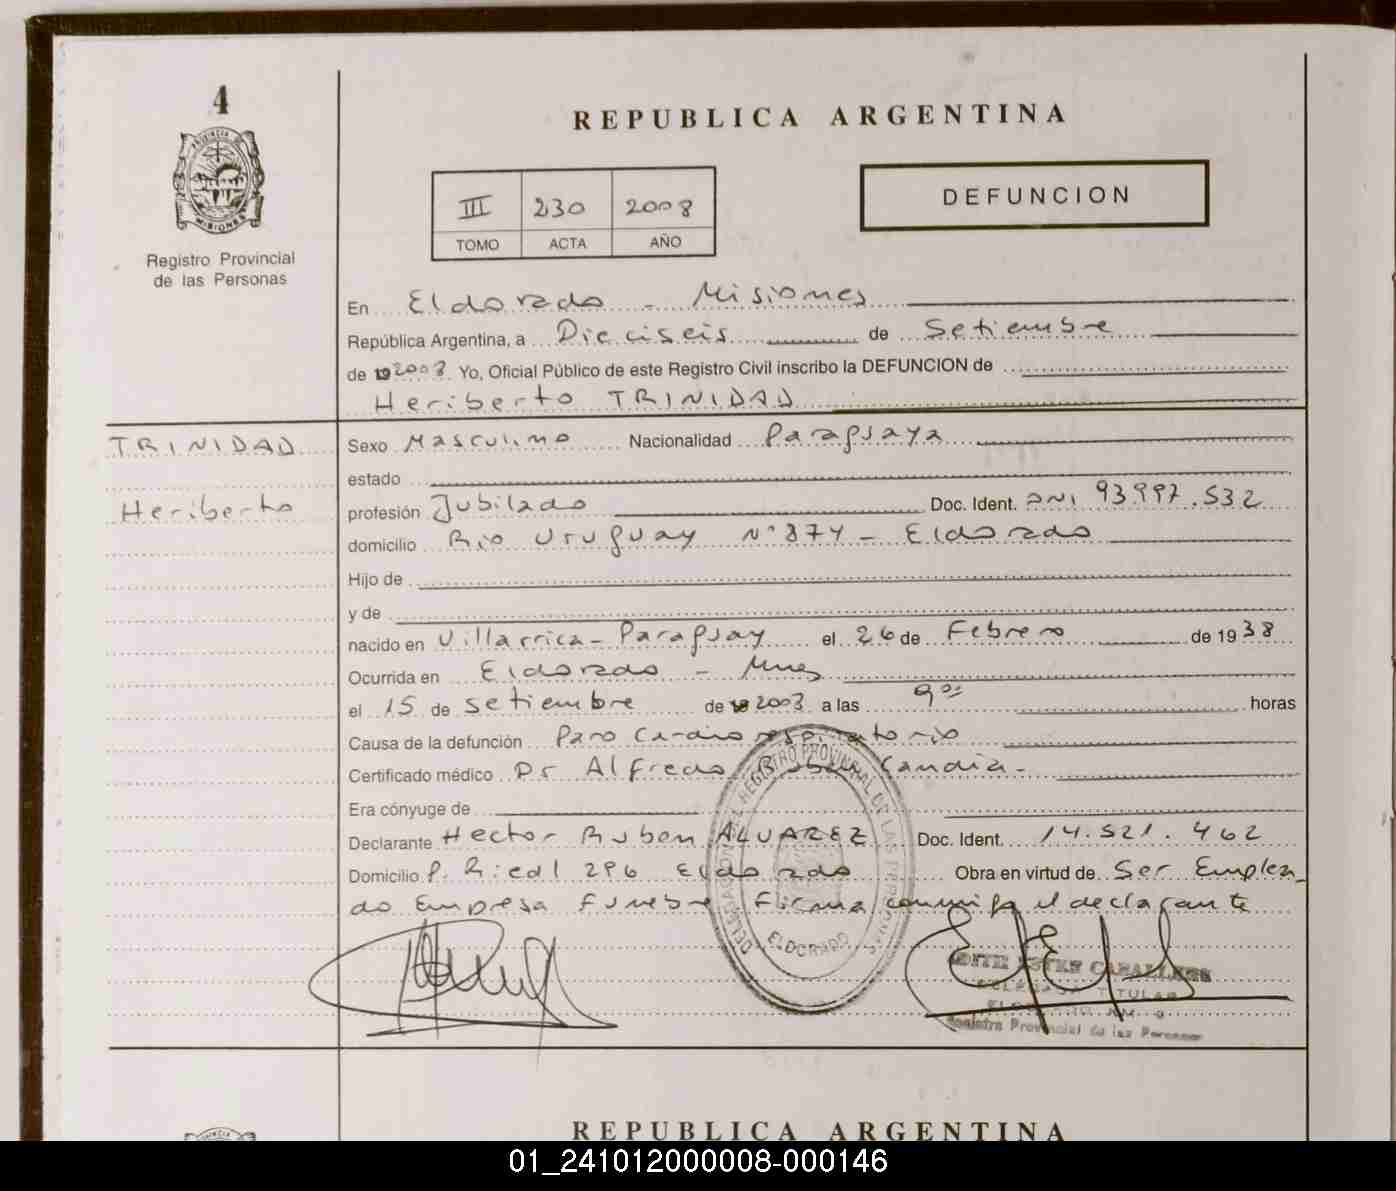 4
PROVINCIA DE
MISIONES
Registro Provincial
de las Personas
REPUBLICA ARGENTINA
III 230 2008
TOMO ACTA AÑO
DEFUNCION
En Eldorado - Misiones
República Argentina, a Dieciseis de Setiembre
de 19 2008 Yo, Oficial Público de este Registro Civil inscribo la DEFUNCION de
Heriberto TRINIDAD
TRINIDAD
Heriberto
Sexo Masculino Nacionalidad Paraguaya
estado
profesión Jubilado Doc. Ident. DNI 93997.532
domicilio Rio Uruguay N° 874 - Eldorado
Hijo de
y de
nacido en Villarrica - Paraguay el 26 de Febrero de 1938
Ocurrida en Eldorado - Mnes
el 15 de Setiembre de 2008 a las 9 horas
Causa de la defunción Paro Cardiorespiratorio
Certificado médico Dr Alfredo Ruben Candia -
Era cónyuge de
Declarante Hector Ruben ALVAREZ Doc. Ident. 14.521.462
Domicilio P. Riedl 296 Eldorado Obra en virtud de Ser Emplea_
do Empresa Funebre Firma conmigo el declarante
DELEGACION REGISTRO PROVINCIAL DE LAS PERSONAS
ELDORADO
EDITH ESTER CABALLERO
DELEGADA TITULAR
ELDORADO
Registro Provincial de las Personas
REPUBLICA ARGENTINA
01_241012000008-000146